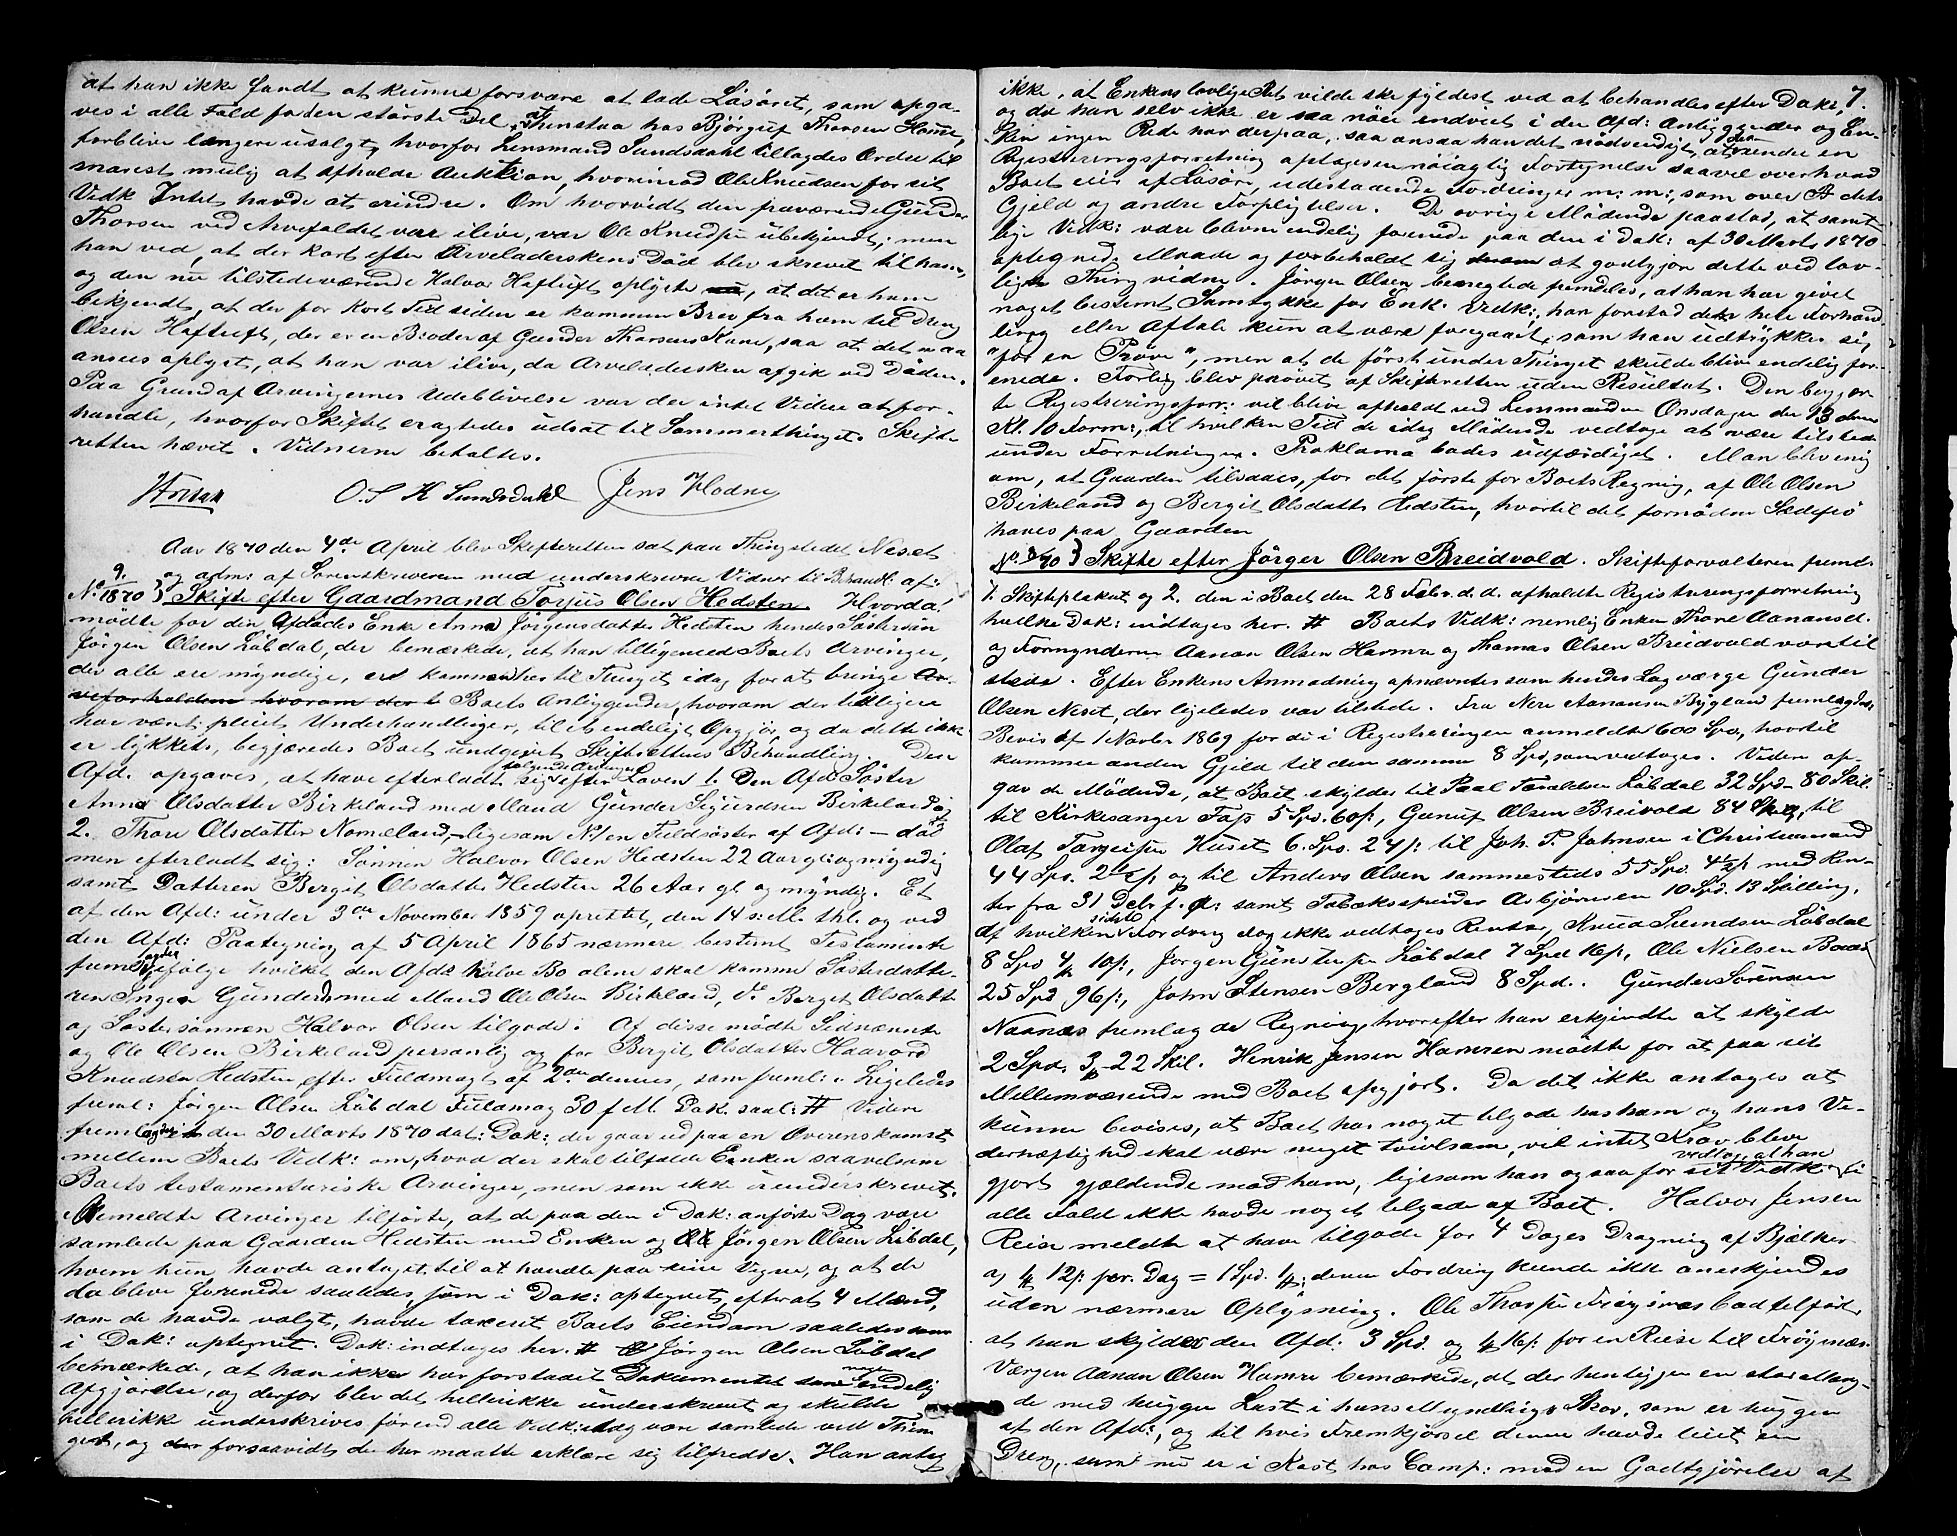 at han ikke fandt at kunne forsvare at lade Løsøret, som opga-
ves i alle Fald for den største Del at henstaa hos Bjørguf Thorsen Homme,
forblive længere usolgt, hvorfor Lensmand Sundsdahl tillagdes Ordre til
snarest mulig at afholde Auktion, hvorimod Ole Knudsen for sit
Vedk Intet havde at erindre. Om hvorvidt den fraværende Gunder
Thorsen ved Arvefaldet var ilive, var Ole Knudsen ubekjendt; men
han ved, at der kort efter Arveladerskens Død blev skrevet til ham,
og den nu tilstedeværende Halvor Haftuft oplyste, at det er ham
bekjendt, at der for kort Tid siden er kommen Brev fra ham til Dreng
Olsen Haftuft, der er en Broder af Gunder Thorsens Kone, saa at det maa
ansees oplyst, at han var ilive, da Arveladersken afgik ved Døden.
Paa Grund af Arvingernes Udeblivelse var der intet Videre at for-
handle, hvorfor Skiftet eragtedes udsat til Sommerthinget. Skifte-
retten hævet. Vidnerne betaltes.
O. S. K. Sundsdahl Jens Hodne
Aar 1870 den 4de April blev Skifteretten sat paa Thingstedet Neset
og adm: af Sorenskriveren med underskrevne Vidner til Behandl. af:
No 9. 1870 } Skifte efter Gaardmand Torjus Olsen Hedsten. Hvorda
mødte for den Afdødes Enke Anna Jørgensdatter Hedsten hendes Søstersøn
Jørgen Olsen Løbdal, der bemærkede, at han tilligemed Boets Arvinger,
der alle ere myndige, er kommen her til Thinget idag for at bringe Ar-
veforholdene hvorom der t Boets Anliggender, hvorom der tidligere
har vært pleiet Underhandlinger, til et endeligt Opgjør, og da dette ikke
er lykkets, begjæredes Boet undergivet Skifterettens Behandling. Den
Afd. opgaves, at have efterladt sig følgende Arvinger efter Loven 1. Den Afd: Søster
Anna Olsdatter Birkeland med Mand Gunder Sigurdsen Birkeland og
2. Thore Olsdatter Nomeland, ligesom No 1 en Fuldsøster af Afd: – død
men efterladt sig: Sønnen Halvor Olsen Hedsten 22 Aar gl. og myndig
samt Datteren Bergit Olsdatter Hedsten 26 Aar gl. og myndig. Et
af den Afd: under 3die November 1859 oprettet, den 14 s: M. thl. og ved
den Afd: Paategning af 5 April 1865 nærmere bestemt Testamente
fremlagdes ifølge hvilket den Afdes halve Bo alene skal komme Søsterdatte-
ren Inger Gundersd med Mand Ole Olsen Birkeland, Do Berget Olsdatter
og Søstersønnen Halvor Olsen tilgode. Af disse mødte Sidnævnte
og Ole Olsen Birkeland personlig og for Bergit Olsdatter Haavord
Knudsen Hedsten efter Fuldmagt af 2den dennes, som freml: Ligeledes
freml: Jørgen Olsen Løbdal Fuldmag 30 f M. Dok. saal: # Videre
fremlagdes et den 30 Marts 1870 dat: Dok: der gaar ud paa en Overenskomst
mellem Boets Vedk: om, hvad der skal tilfalde Enken saavelsom
Boets testamentariske Arvinger, men som ikke er underskrevet.
Ommeldte Arvinger tilførte, at de paa den i Dok: anførte Dag vare
samlede paa Gaarden Hedsten med Enken og Jørgen Olsen Løbdal,
hvem hun havde antaget til at handle paa sine Vegne, og at de
da bleve forenede saaledes, som i Dok: optegnet, efterat 4 Mænd,
som de havde valgt, havde taxeret Boets Eiendom saaledes som
i Dok: optegnet. Dok: indtages her. # Jørgen Olsen Løbdal
bemærkede, at han ikke har forstaaet Dokumentet som nogen endelig
Afgjørelse, og derfor blev det hellerikke underskrevet og skulde
hellerikke underskrives førend alle Vedk: idag vare samlede ved Thin-
get, og forsaavidt de her maatte erklære sig tilfredse. Han antog
7.
ikke, at Enkens lovlige Ret vilde ske fyldest ved at behandles efter Dok:,
og da han selv ikke er saa nøie indviet i den Afd: Anliggender og En-
ken ingen Rede har derpaa, saa ansaa han det nødvendigt, at der under en
Registreringsforretning optages en nøiagtig Fortegnelse saavel over hvad
Boet eier af Løsøre, udestaaende Fordringer m: m:, som over dets
Gjeld og andre Forpligtelser. De øvrige Mødende paastod, at samt-
lige Vedk: vare blevne endelig forenede paa den i Dok: af 30 Marts 1870
optegnede Maade og forbeholdt sig at godtgjøre dette ved lov-
ligt Thingsvidne. Jørgen Olsen benegtede fremdeles, at han har givet
noget bestemt Samtykke for Enk: Vedk:, han forstod den hele Forhand-
ling eller Aftale kun at være foregaaet, som han udtrykker sig
"for en Prøve", men at de først under Thinget skulde blive endelig for-
enede. Forlig blev prøvet af Skifteretten uden Resultat. Den begjær-
te Registreringsforr: vil blive afholdt ved Lensmanden Onsdagen den 13 dennes
Kl. 10 Form:, til hvilken Tid de idag Mødende vedtoge at være tilstede
under Forretningen. Proklama bades udfærdiget. Man blev enig
om, at Gaarden tilsaaes, for det første for Boets Regning, af Ole Olsen
Birkeland og Bergit Olsdatter Hedsten, hvortil det fornødne Sædefrø
haves paa Gaarden
No. 3/70 } Skifte efter Jørger Olsen Breidvold. Skifteforvalteren freml:
1. Skifteplakat og 2. den i Boet den 28 Febr. d. d. afholdte Registreringsforretning
hvilke Dok: indtages her. # Boets Vedk: nemlig Enken Thone Aanansd.
og Formynderne Aanon Olsen Hamre og Thomas Olsen Breidvold vare til
stede. Efter Enkens Anmodning opnævntes som hendes Lagværge Gunder
Olsen Neset, der ligeledes var tilstede. Fra Nere Aanansen Bygland fremlagdes
Bevis af 1 Novbr 1869 for de i Registreringen anmeldte 600 Spd, hvortil
kommer anden Gjeld til den samme 8 Spd, som vedtoges. Videre op-
gav de Mødende, at Boet skylder til Paal Taraldsen Løbdal 32 Spd – 80 Skil.
til Kirkesanger Fass 5 Spd. 60 s:, Gunuf Olsen Breivold 84 Spd, til
Olaf Torgeissen Huset 6. Spd. 24 s: til Joh. T. Johnsen i Christiansand
44 Spd. og til Anders Olsen sammesteds 55 Spd. med Ren-
ter fra 31 Debr f. A: samt Tobaksspinder Asbjørnsen 10 Spd. 13 Skilling,
af hvilken sidste Fordring dog ikke vedtages Renter, Knud Svendsen Løbdal
8 Spd 4 10 s:, Jørgen Gunstensen Løbdal 7 Spd 16 s:, Ole Nielsen
25 Spd 96 s:, John Stensen Bergland 8 Spd. Gunder Sørensen
Naanæs fremlagde Regning, hvorefter han erkjendte at skylde
2 Spd. 3 – 22 Skil. Henrik Jensen Hamren mødte for at paa sit
Mellemværende med Boet opgjort. Da det ikke antages at
kunne bevises, at Boet har noget tilgode hos ham og hans Ve-
derhæftighed skal være meget tvivlsom, vil intet Krav blive
gjort gjældende mod ham, ligesom han ogsaa for sit Vedk vedtog, at han i
alle Fald ikke havde noget tilgode af Boet. Halvor Jensen
Reise meldte at have tilgode for 4 Dages Dragning af Bjælker
a 12 s: pr. Dag = 1 Spd. denne Fordring kunde ikke anerkjendes
uden nærmere Oplysning. Ole Thorssen Frøysnæs bad tilført,
at han skylder den Afd: 3 Spd. og 16 s: for en Reise til Frøysnæs.
Værgen Aanon Olsen Hamre bemærkede, at der henligger en stor Mæng-
de med hugger Last i hans Myndlings Skov, som er huggen
af den Afd:, og til hvis Fremkjørsel denne havde leiet en
Dreng, som nu er i Kost hos Comp: mod en Godtgjørelse af